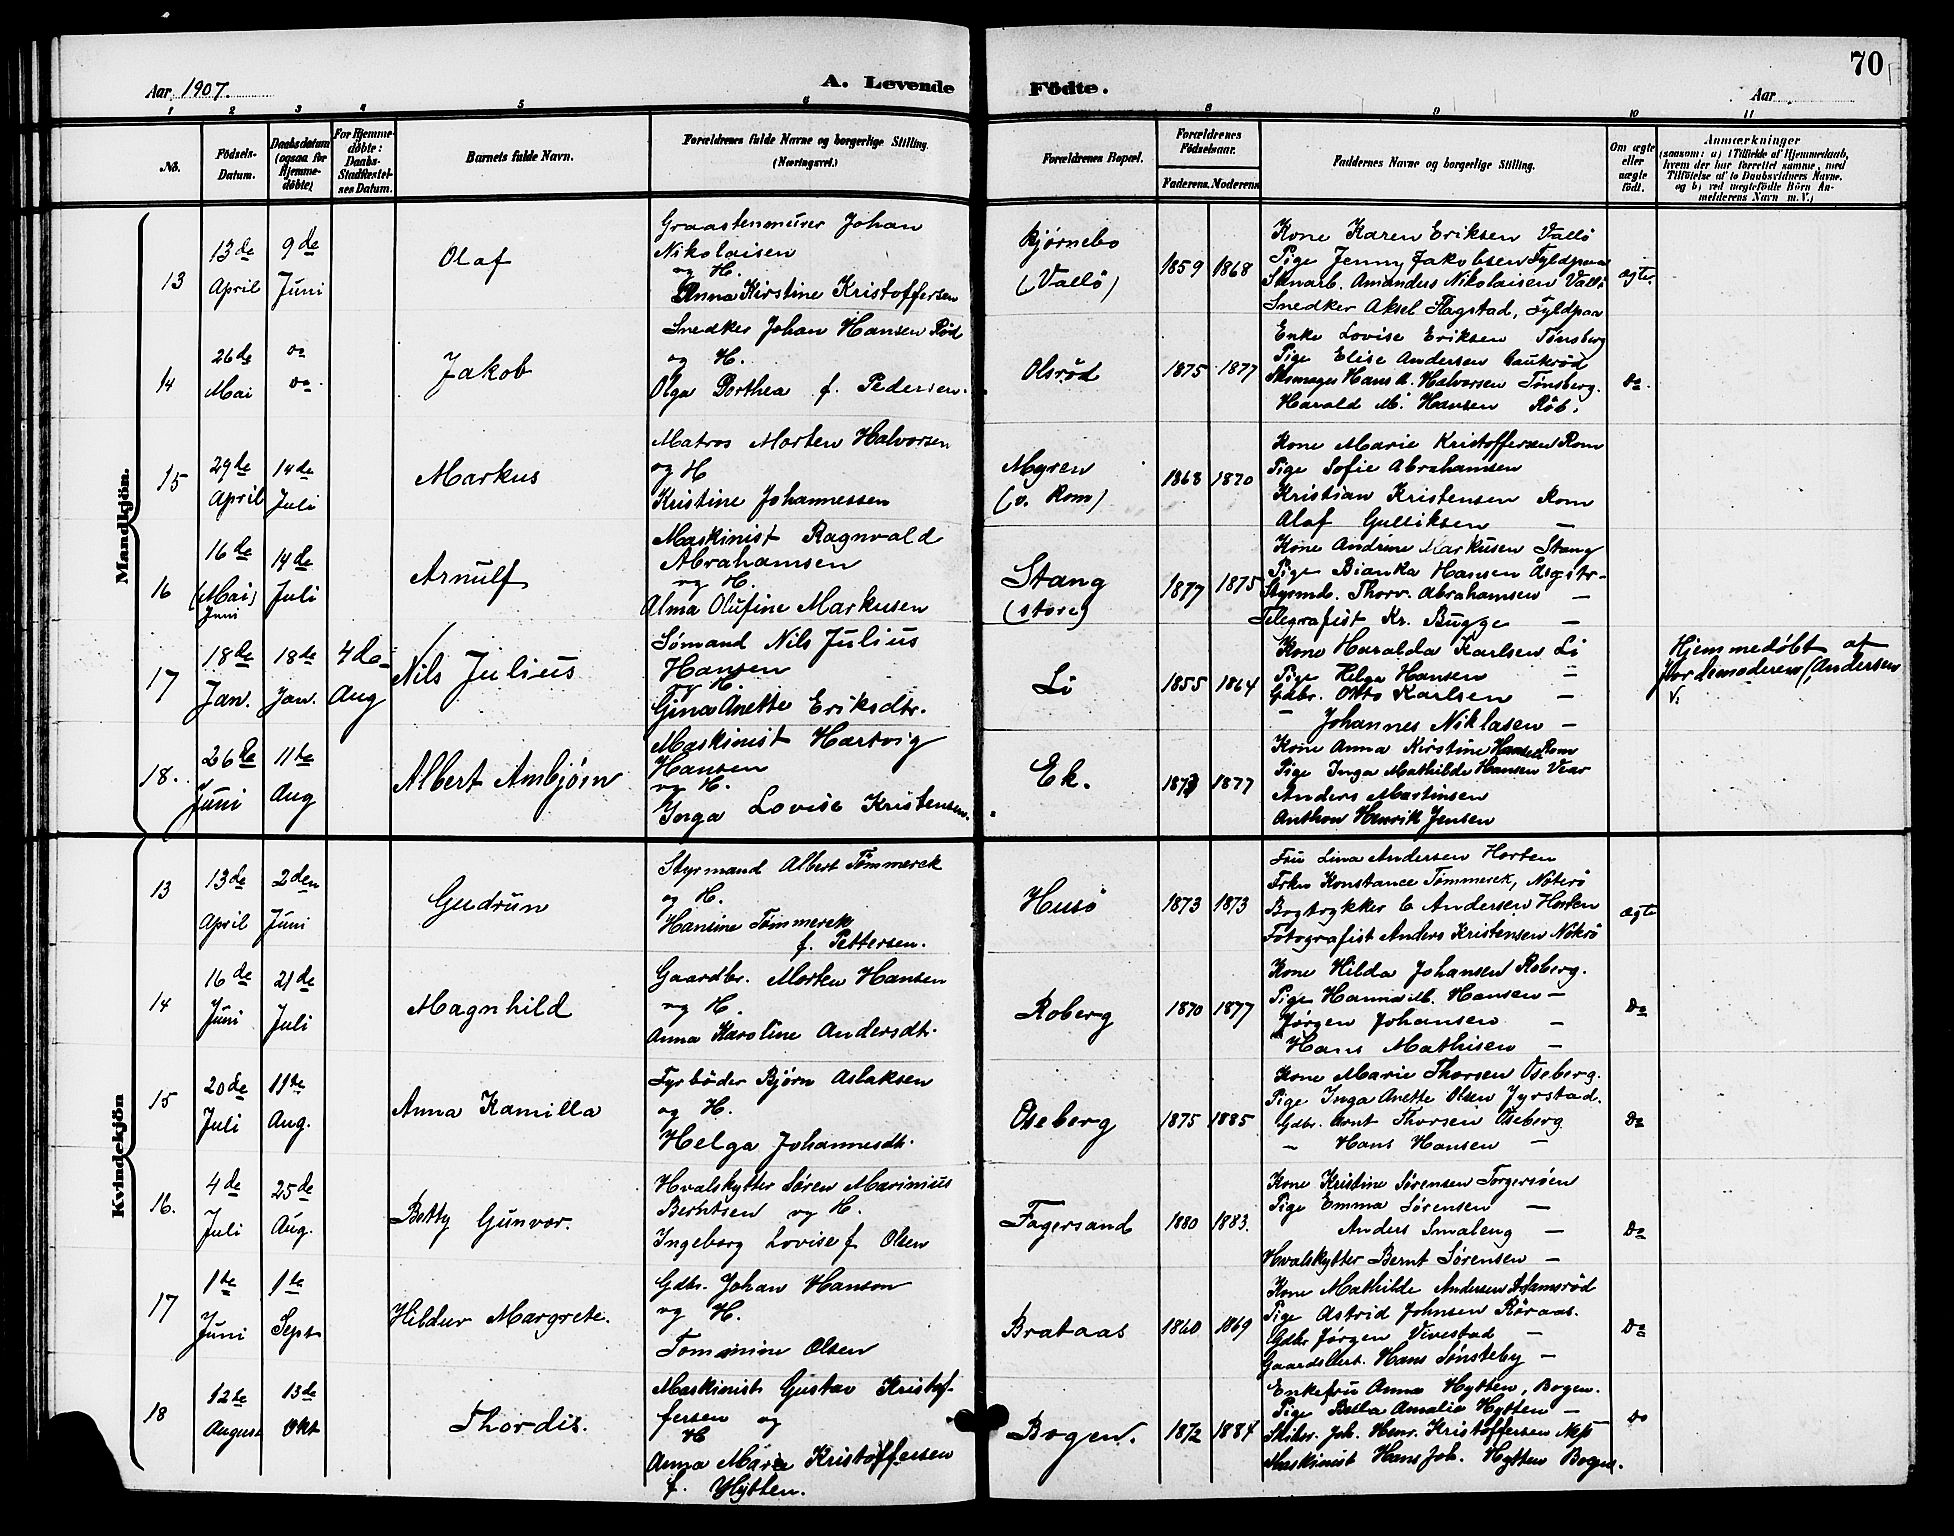 70
Aar 1907.
A. Levende Födte.
Aar
1 2 3 4 5 6 8 9 10 11
No.
Födsels-Datum.
Daabsdatum (ogsaa for Hjemmedöbte)
For Hjemmedöbte: Daabs-Stadfæstelses Datum.
Barnets fulde Navn.
Forældrenes fulde Navne og borgerlige Stilling. (Næringsvei.)
Forældrenes Bopæl.
Forældrenes Födselsaar.
Faderens. Moderens
Faddernes Navne og borgerlige Stilling.
Om ægte eller uægte födt.
Anmærkninger
(saasom: a) i Tilfælde af Hjemmedaab,
hvem der har forrettet samme, med
Tilföielse af to Daabsvidners Navne.
og b) ved uegtefödte Börn An-
melderens Navn m. V.)
Mandkjön.
13
13de April
9de Juni
Olaf
Graastenmurer Johan
Nikolaisen
og H.
Anna Kirstine Kristoffersen
Bjørnebo
(Vallö)
1859 1868
Kone Karen Eriksen Vallö
Pige Jenny Jakobsen Fyldpaa
Amandus Nikolaisen Vallö
Snedker Aksel Flagstad, Fyldpaa
ægte.
14
26de Mai
do do
Jakob
Snedker Johan Hansen Röd
og H.
Olga Dorthea f. Pedersen.
Olsröd
1875 1877
Enke Lovise Eriksen Tønsberg
Pige Elise Andersen Gaukröd
Skomager Hans A. Halvorsen Tønsberg.
Harald M. Hansen Röd.
do.
15
29de April
14de Juli
Markus
Matros Morten Halvorsen
og H
Kristine Johannessen
Myren
(v. Rom)
1868 1870
Kone Marie Kristoffersen Rom
Pige Sofie Abrahamsen
Kristian Kristensen Rom
Olaf Gulliksen —
16
16de (Mai) Juni
14de Juli
Arnulf
Maskinist Ragnvald
Abrahamsen
og H.
Alma Olufine Markusen
Stang
(store)
1877 1875
Kone Andrine Markusen Stang
Pige Bianka Hansen
Styrmd. Thorv. Abrahamsen —
Telegrafist Kr. Bugge —
17
18de Jan.
18de Jan.
4de Aug
Nils Julius
Sömand Nils Julius
Hansen
og H.
Gina Anette Eriksdtr.
Li
1855 1864
Kone Haralda Karlsen Li
Pige Helga Hansen —
Gdbr. Otto Karlsen —
— Johannes Niklasen —
Hjemmedøbt af
Jordemoderen Andersen
18.
26de Juni
11te Aug
Albert Ambjörn
Maskinist Hartvig
Hansen
og H.
Inga Lovise Kristensen.
Ek.
1873 1877
Kone Anna Kirstine Hansen Rom
Pige Inga Mathilde Hansen Vear
Anders Martinsen
Anthon Henrik Jensen
Kvindekjön
13
13de April
2den Juni
Gudrun
Styrmand Albert Tömmerek
og H.
Hansine Tömmerek
f. Pettersen.
Husö
1873 1873
Fru Lina Andersen Horten
Frkn Konstance Tömmerek, Nöterö
Bogtrykker C Andersen Horten
Fotografist Anders Kristensen Nøterö
ægte
14
16de Juni
21de Juli
Magnhild
Gaardbr. Morten Hansen
og H.
Anna Karoline Andersdtr.
Roberg
1870 1877
Kone Hilda Johansen Roberg.
Pige Hanna M. Hansen —
Jørgen Johansen —
Hans Mathisen —
Do
15
20de Juli
11te Aug.
Anna Kamilla
Fyrböder Bjørn Aslaksen
og H.
Helga Johannesdtr.
Oseberg
1875 1885
Kone Marie Thorsen Oseberg.
Pige Inga Anette Olsen Jyrstad.
Gdbr. Arnt Thorsen Oseberg
— Hans Hansen —
Do
16.
4de Juli
25de Aug.
Betty Gunvor.
Hvalskytter Søren Marinius
Berntsen og H.
Ingeborg Lovise f Olsen
Fagersand
1880 1883.
Kone Kristine Sørensen Torgersöen
Pige Emma Sørensen —
Anders Smaleng —
Hvalskytter Bernt Sørensen —
Do
17
1te Juni
1te Sept
Hildur Margrete.
Gdbr. Johan Hanson
og H.
Tommine Olsen
Brataas
1860 1869
Kone Mathilde Andersen Adamsröd
Pige Astrid Johnsen Röraas.
Gdbr Jørgen Vivestad —
Hans Sønsteby —
Do
18
12te August
13de Okt
Thordis.
Maskinist Gustav Kristof-
fersen og
H
Anna Marie Kristoffersen
f. Hytten.
Bogen.
1872 1884
Enkefru Anna Hytten, Bogen.
Pige Bella Amalie Hytten —
Joh. Henr. Kristoffersen
Maskinist Hans Joh. Hytten Bogen.
Do